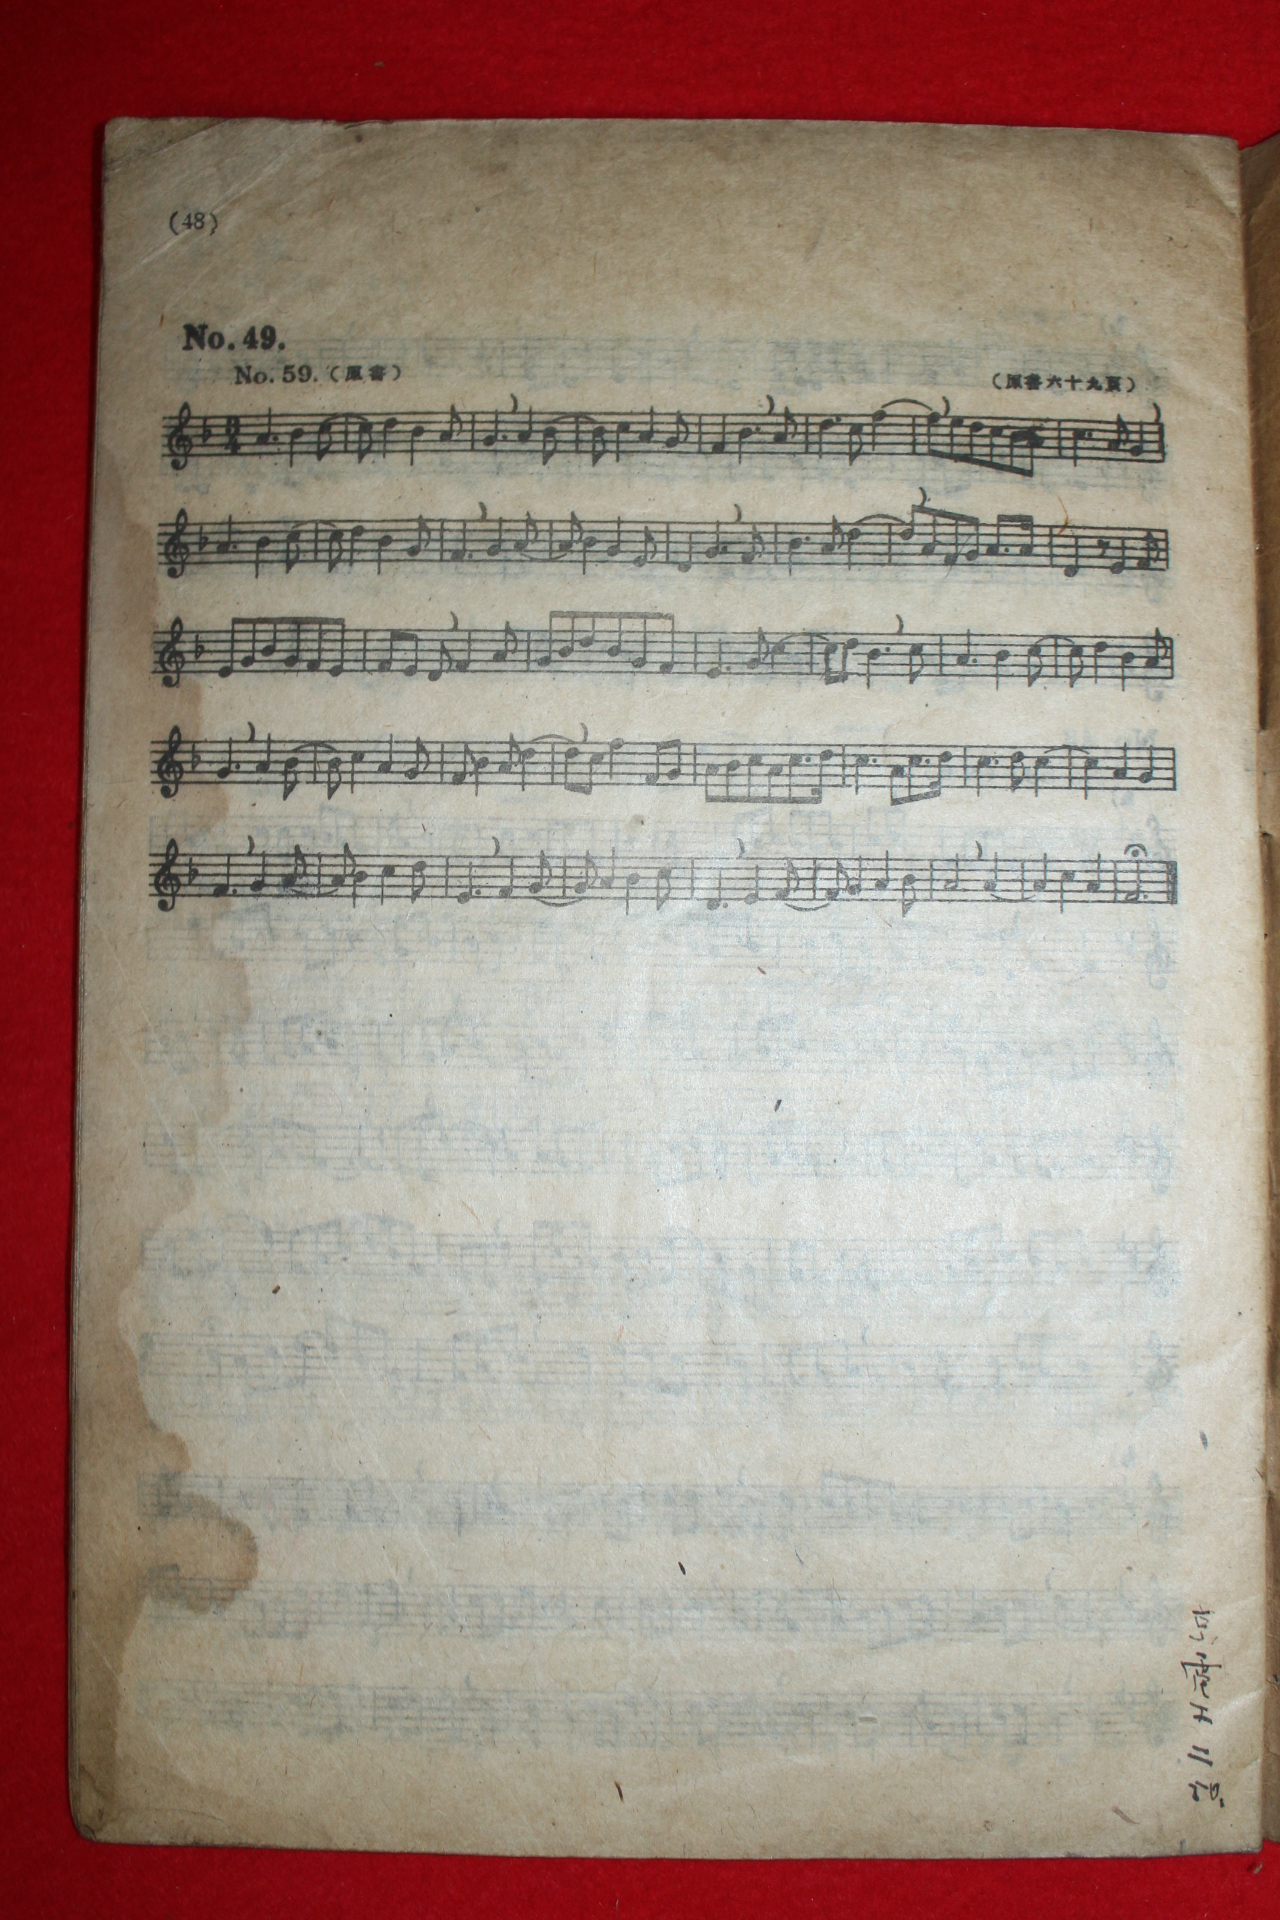 (48)
No. 49.
No. 59. (原書)
(原書六十九頁)
3
4